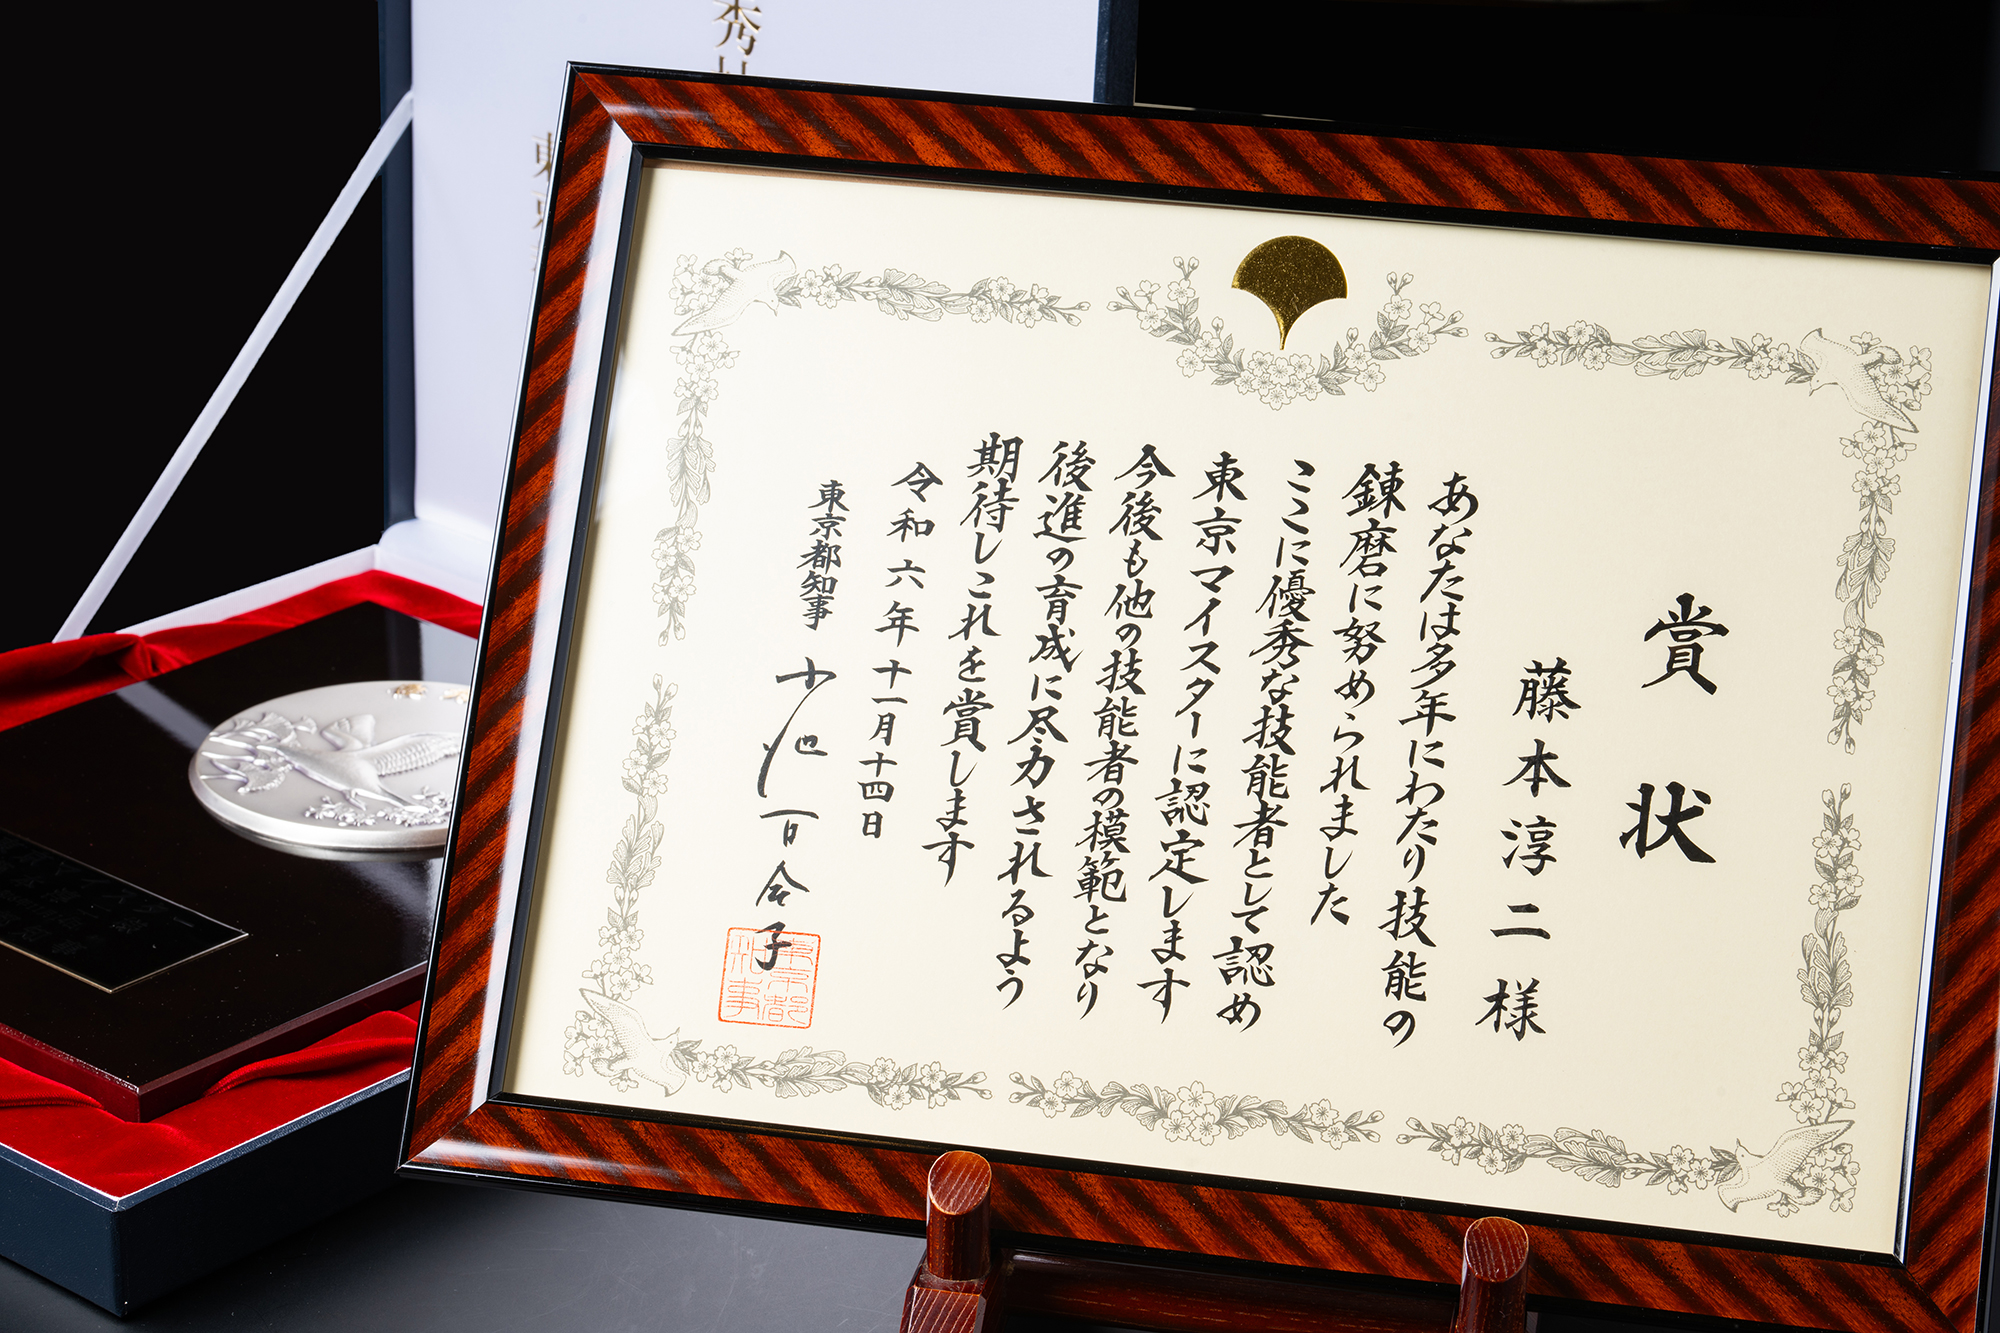 賞状
藤本淳二様
あなたは多年にわたり技能の
錬磨に努められました
ここに優秀な技能者として認め
東京マイスターに認定します
今後も他の技能者の模範となり
後進の育成に尽力されるよう
期待しこれを賞します
令和六年十一月十四日
東京都知事 小池百合子
東京都知事
秀